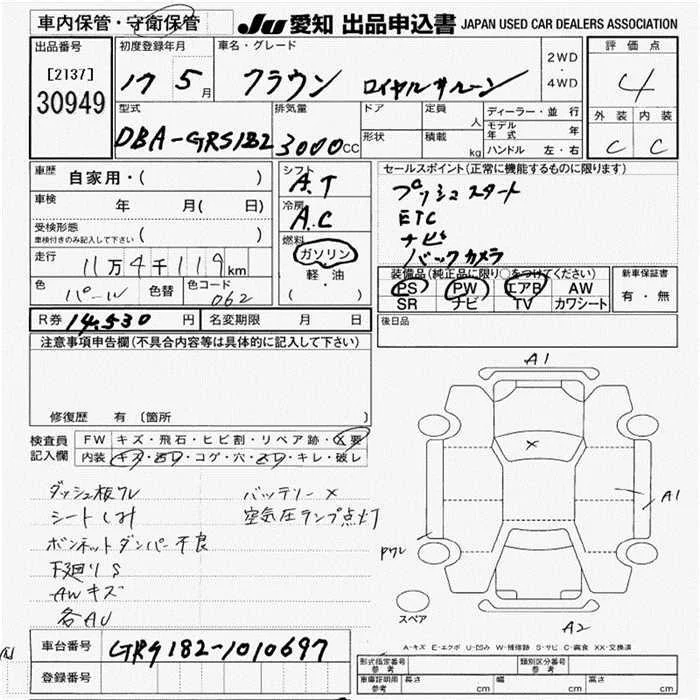 車内保管・守衛保管
JU 愛知 出品申込書 JAPAN USED CAR DEALERS ASSOCIATION
出品番号
[2137]
30949
初度登録年月
17 5月
車名・グレード
クラウン ロイヤルサルーン
2WD
・
4WD
評価点
4
外装 内装
C C
型式
DBA-GRS182
排気量
3000CC
ドア
形状
定員
人
積載
kg
ディーラー・並行
モデル年式 年
ハンドル 左・右
車歴
自家用・( )
車検
年 月( 日)
受検形態
車検付きのみ記入して下さい ( )
走行
11万4千119km
色
パール
色替
色コード
062
シフト
A.T
冷房
A.C
燃料
ガソリン
軽・油
( ・ )
セールスポイント(正常に機能するものに限ります)
プッシュスタート
ETC
ナビ
バックカメラ
装備品(純正品に限り○をつけてください)
PS PW エアB AW
SR ナビ TV カワシート
新車保証書
有・無
R券 14.530 円
名変期限 月 日
後日品
注意事項申告欄(不具合内容等は具体的に記入して下さい)
修復歴 有 〔箇所 〕
検査員記入欄
FW キズ・飛石・ヒビ割・リペア跡・X要
内装 キズ・汚レ・コゲ・穴・スレ・キレ・破レ
ダッシュ板ワレ
シートしみ
ボンネットダンパー不良
下廻りS
AWキズ
各AU
バッテリー×
空気圧ランプ点灯
A1
A1
Pワレ
スペア
A2
A-キズ E-エクボ U-凹み W-補修跡 S-サビ C-腐食 XX-交換済
車台番号
GRS182-1010697
登録番号
形式指定番号
参考
類別区分番号
参考
車庫証明用
参考
長さ cm 幅 cm 高さ cm